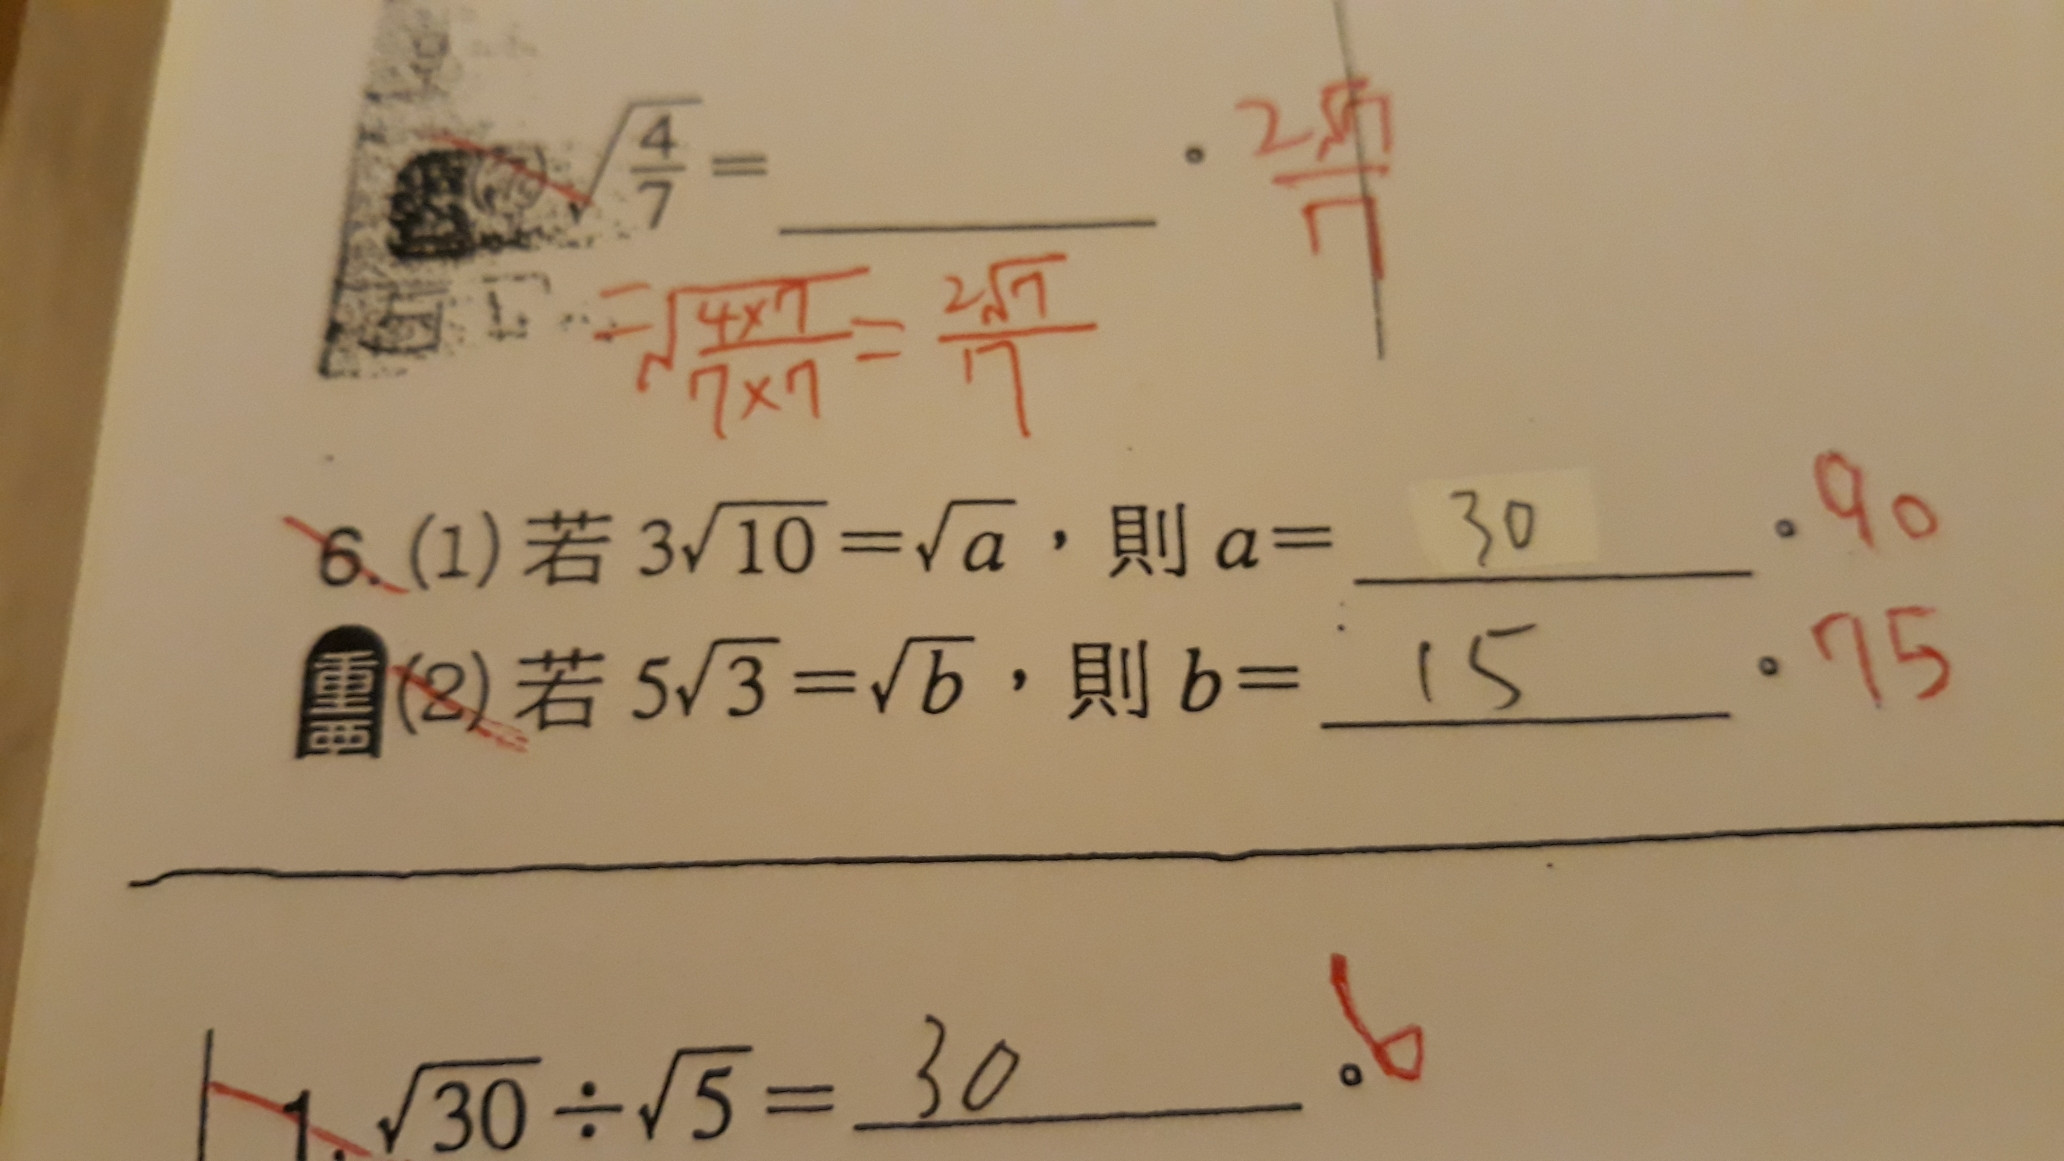 √(4/7) = ________。 2√7/7
= √((4×7)/(7×7)) = 2√7/17
6. (1) 若 3√10 = √a，則 a = 30。90
重 (2) 若 5√3 = √b，則 b = 15。75
1. √30 ÷ √5 = 30。6